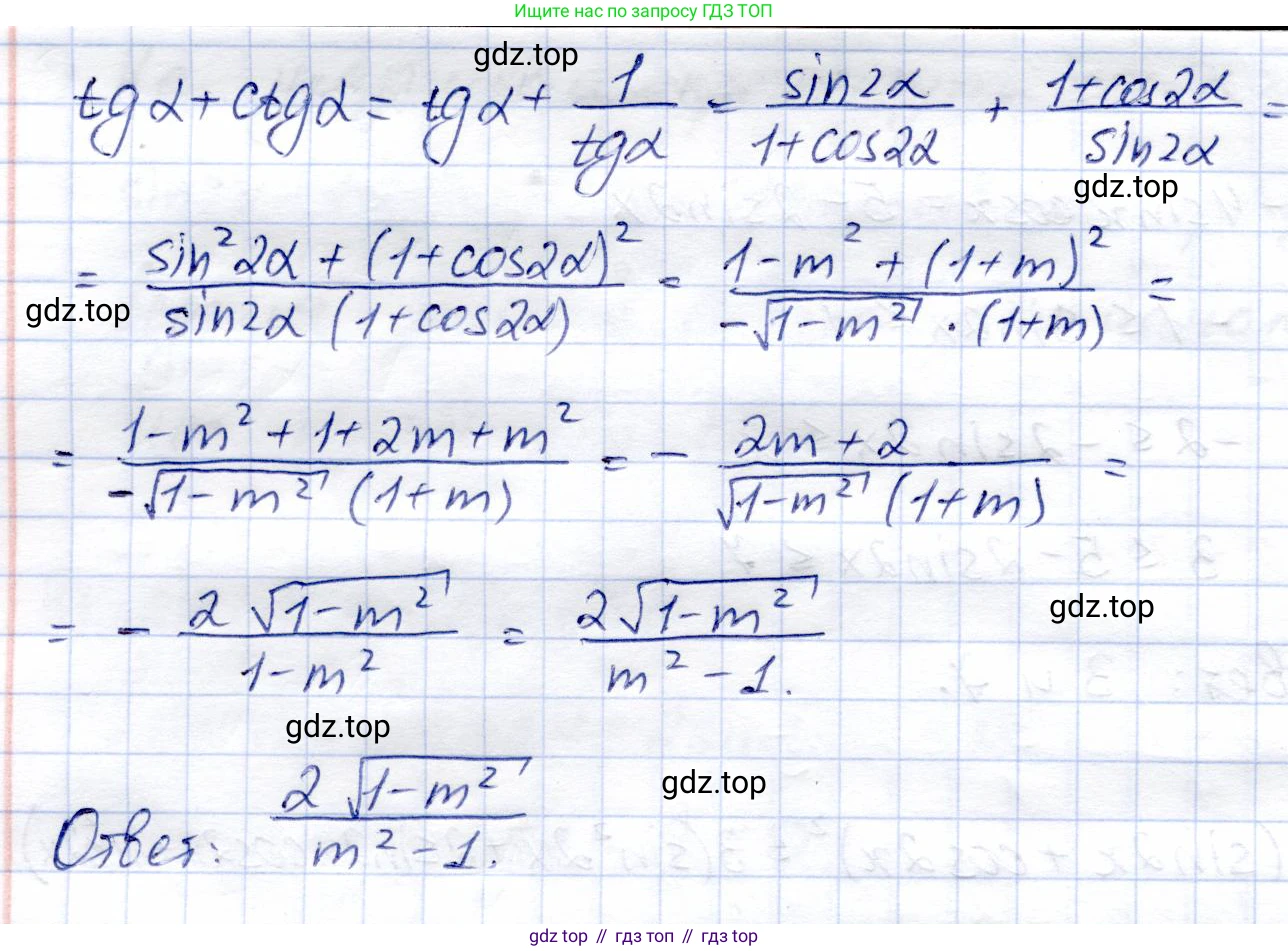 Ищите нас по запросу ГДЗ ТОП
gdz.top
tgα + ctgα = tgα + 1/tgα = sin2α/(1+cos2α) + (1+cos2α)/sin2α =
gdz.top
= (sin²2α + (1+cos2α)²)/(sin2α (1+cos2α)) = (1-m² + (1+m)²)/(-√(1-m²) · (1+m)) =
gdz.top
= (1-m² + 1+2m+m²)/(-√(1-m²) (1+m)) = - (2m+2)/(√(1-m²) (1+m)) =
= - 2√(1-m²)/(1-m²) = 2√(1-m²)/(m²-1).
gdz.top
gdz.top
gdz.top
Ответ: 2√(1-m²)/(m²-1).
gdz top // гдз топ // гдз top